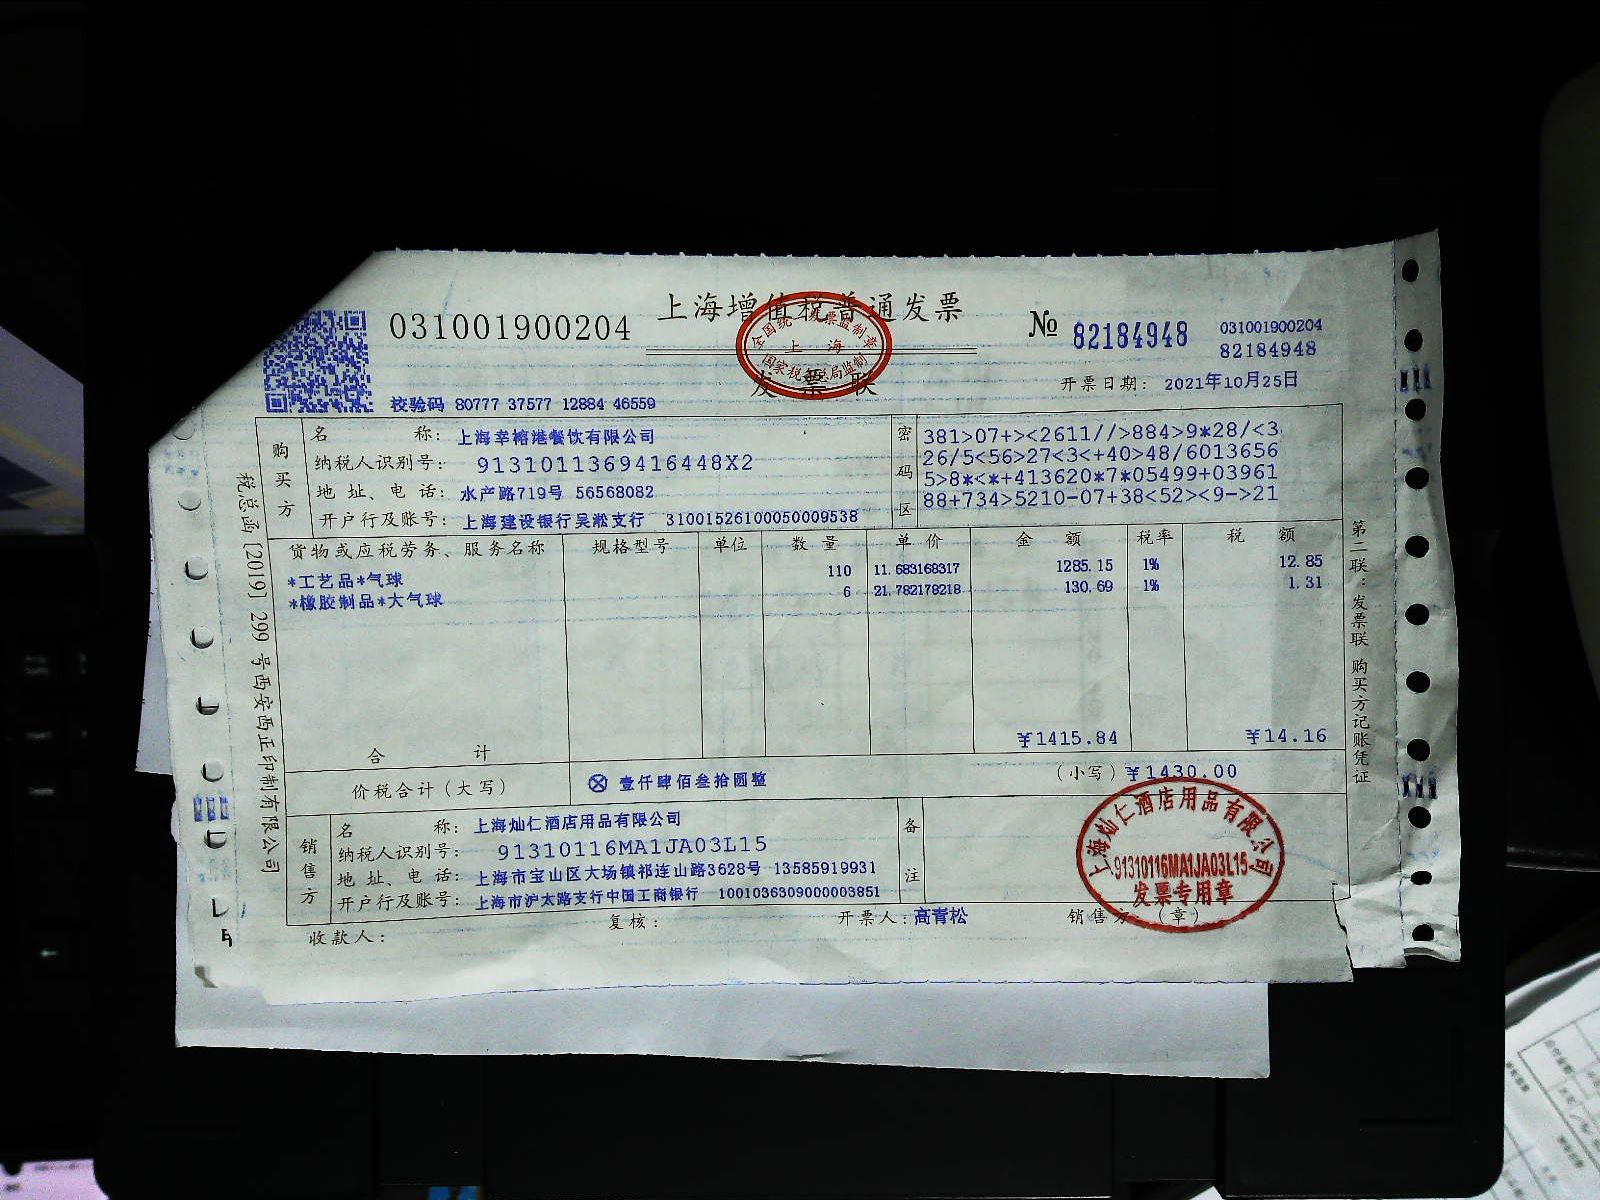 上海增值税普通发票
031001900204
№ 82184948
031001900204
82184948
全国统一发票监制章
上海
国家税务总局监制
发票联
校验码 80777 37577 12884 46559
开票日期: 2021年10月25日
购买方
名称: 上海幸榕港餐饮有限公司
纳税人识别号: 9131011369416448X2
地址、电话: 水产路719号 56568082
开户行及账号: 上海建设银行吴淞支行 31001526100050009538
密码区
381>07+><2611//>884>9*28/<3
26/5<56>27<3<+40>48/6013656
5>8*<*+413620*7*05499+03961
88+734>5210-07+38<52><9->21
货物或应税劳务、服务名称 规格型号 单位 数量 单价 金额 税率 税额
*工艺品*气球 110 11.683168317 1285.15 1% 12.85
*橡胶制品*大气球 6 21.782178218 130.69 1% 1.31
合计 ¥1415.84 ¥14.16
价税合计(大写) ⊗ 壹仟肆佰叁拾圆整 (小写) ¥1430.00
销售方
名称: 上海灿仁酒店用品有限公司
纳税人识别号: 91310116MA1JA03L15
地址、电话: 上海市宝山区大场镇祁连山路3628号 13585919931
开户行及账号: 上海市沪太路支行中国工商银行 1001036309000003851
备注
上海灿仁酒店用品有限公司
91310116MA1JA03L15
发票专用章
收款人: 复核: 开票人: 高青松 销售方:(章)
税总函[2019]299号西安西正印制有限公司
第二联:发票联 购买方记账凭证